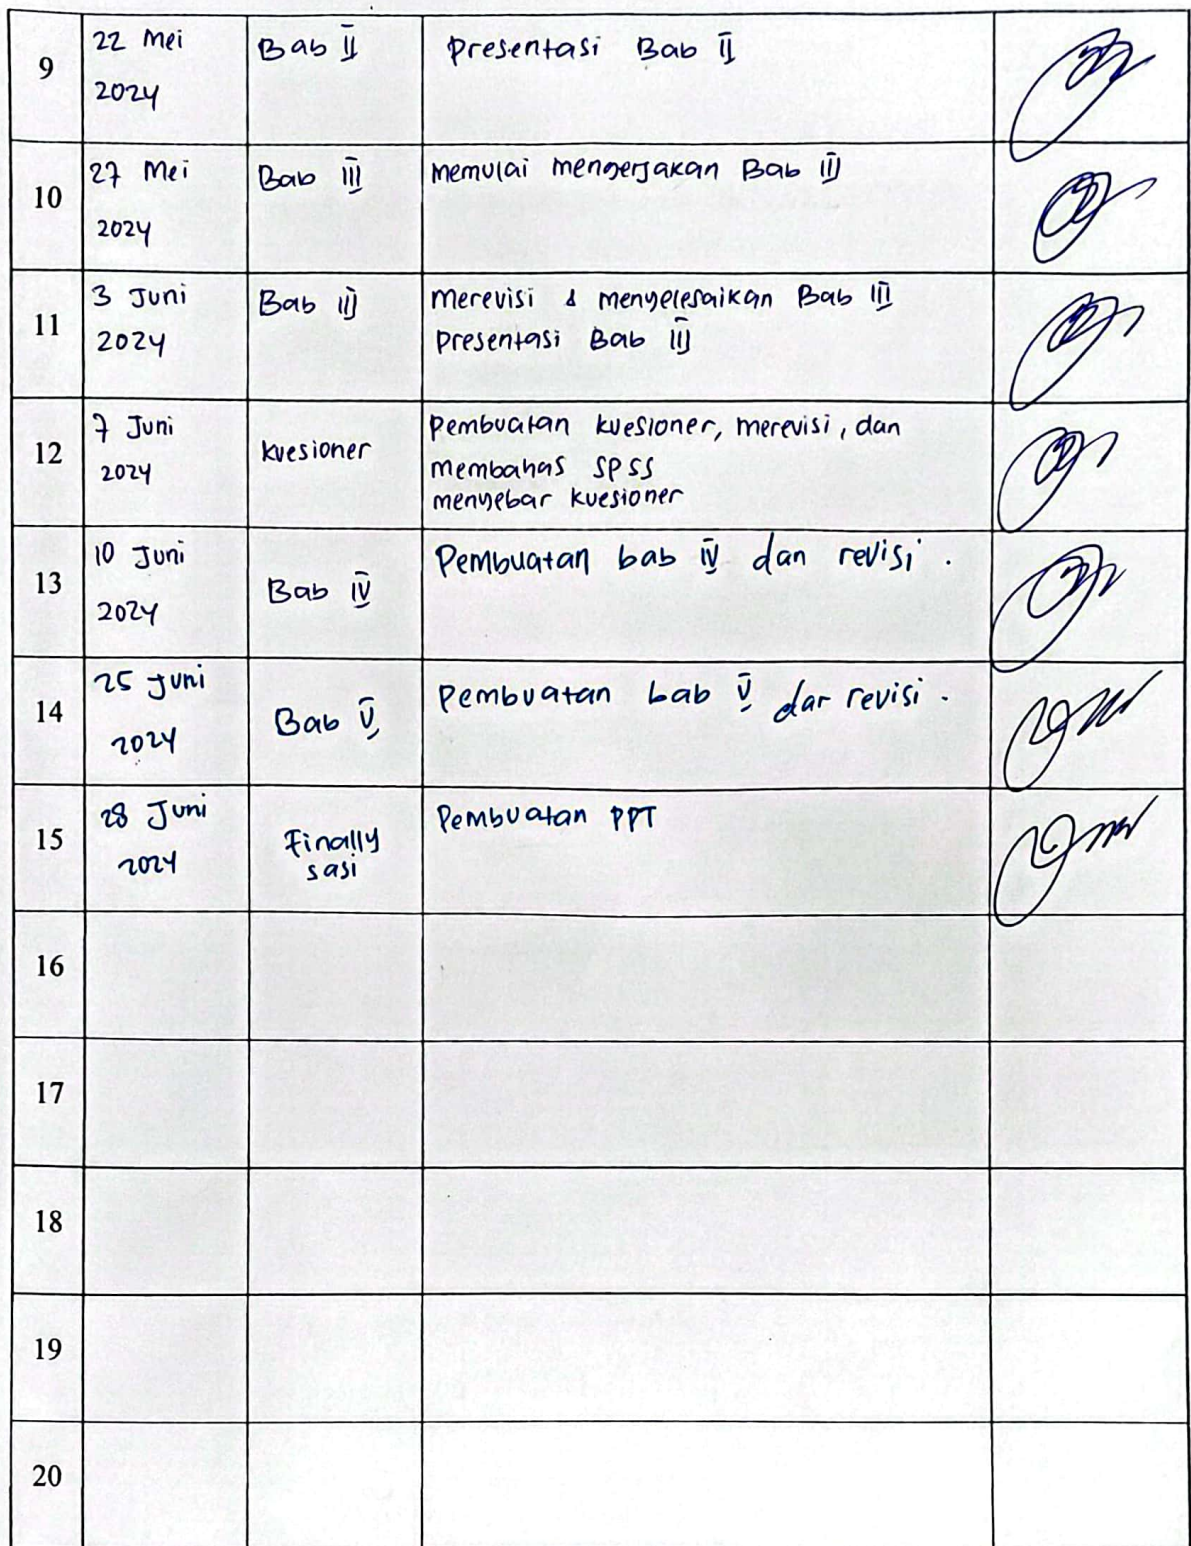 9
22 Mei
2024
Bab II
Presentasi Bab II
10
27 Mei
2024
Bab III
Memulai mengerjakan Bab III
11
3 Juni
2024
Bab III
Merevisi & menyelesaikan Bab III
Presentasi Bab III
12
7 Juni
2024
kuesioner
Pembuatan kuesioner, merevisi, dan
membahas SPSS
menyebar kuesioner
13
10 Juni
2024
Bab IV
Pembuatan bab IV dan revisi.
14
25 Juni
2024
Bab V
Pembuatan bab V dar revisi.
15
28 Juni
2024
Finally
sasi
Pembuatan PPT
16
17
18
19
20